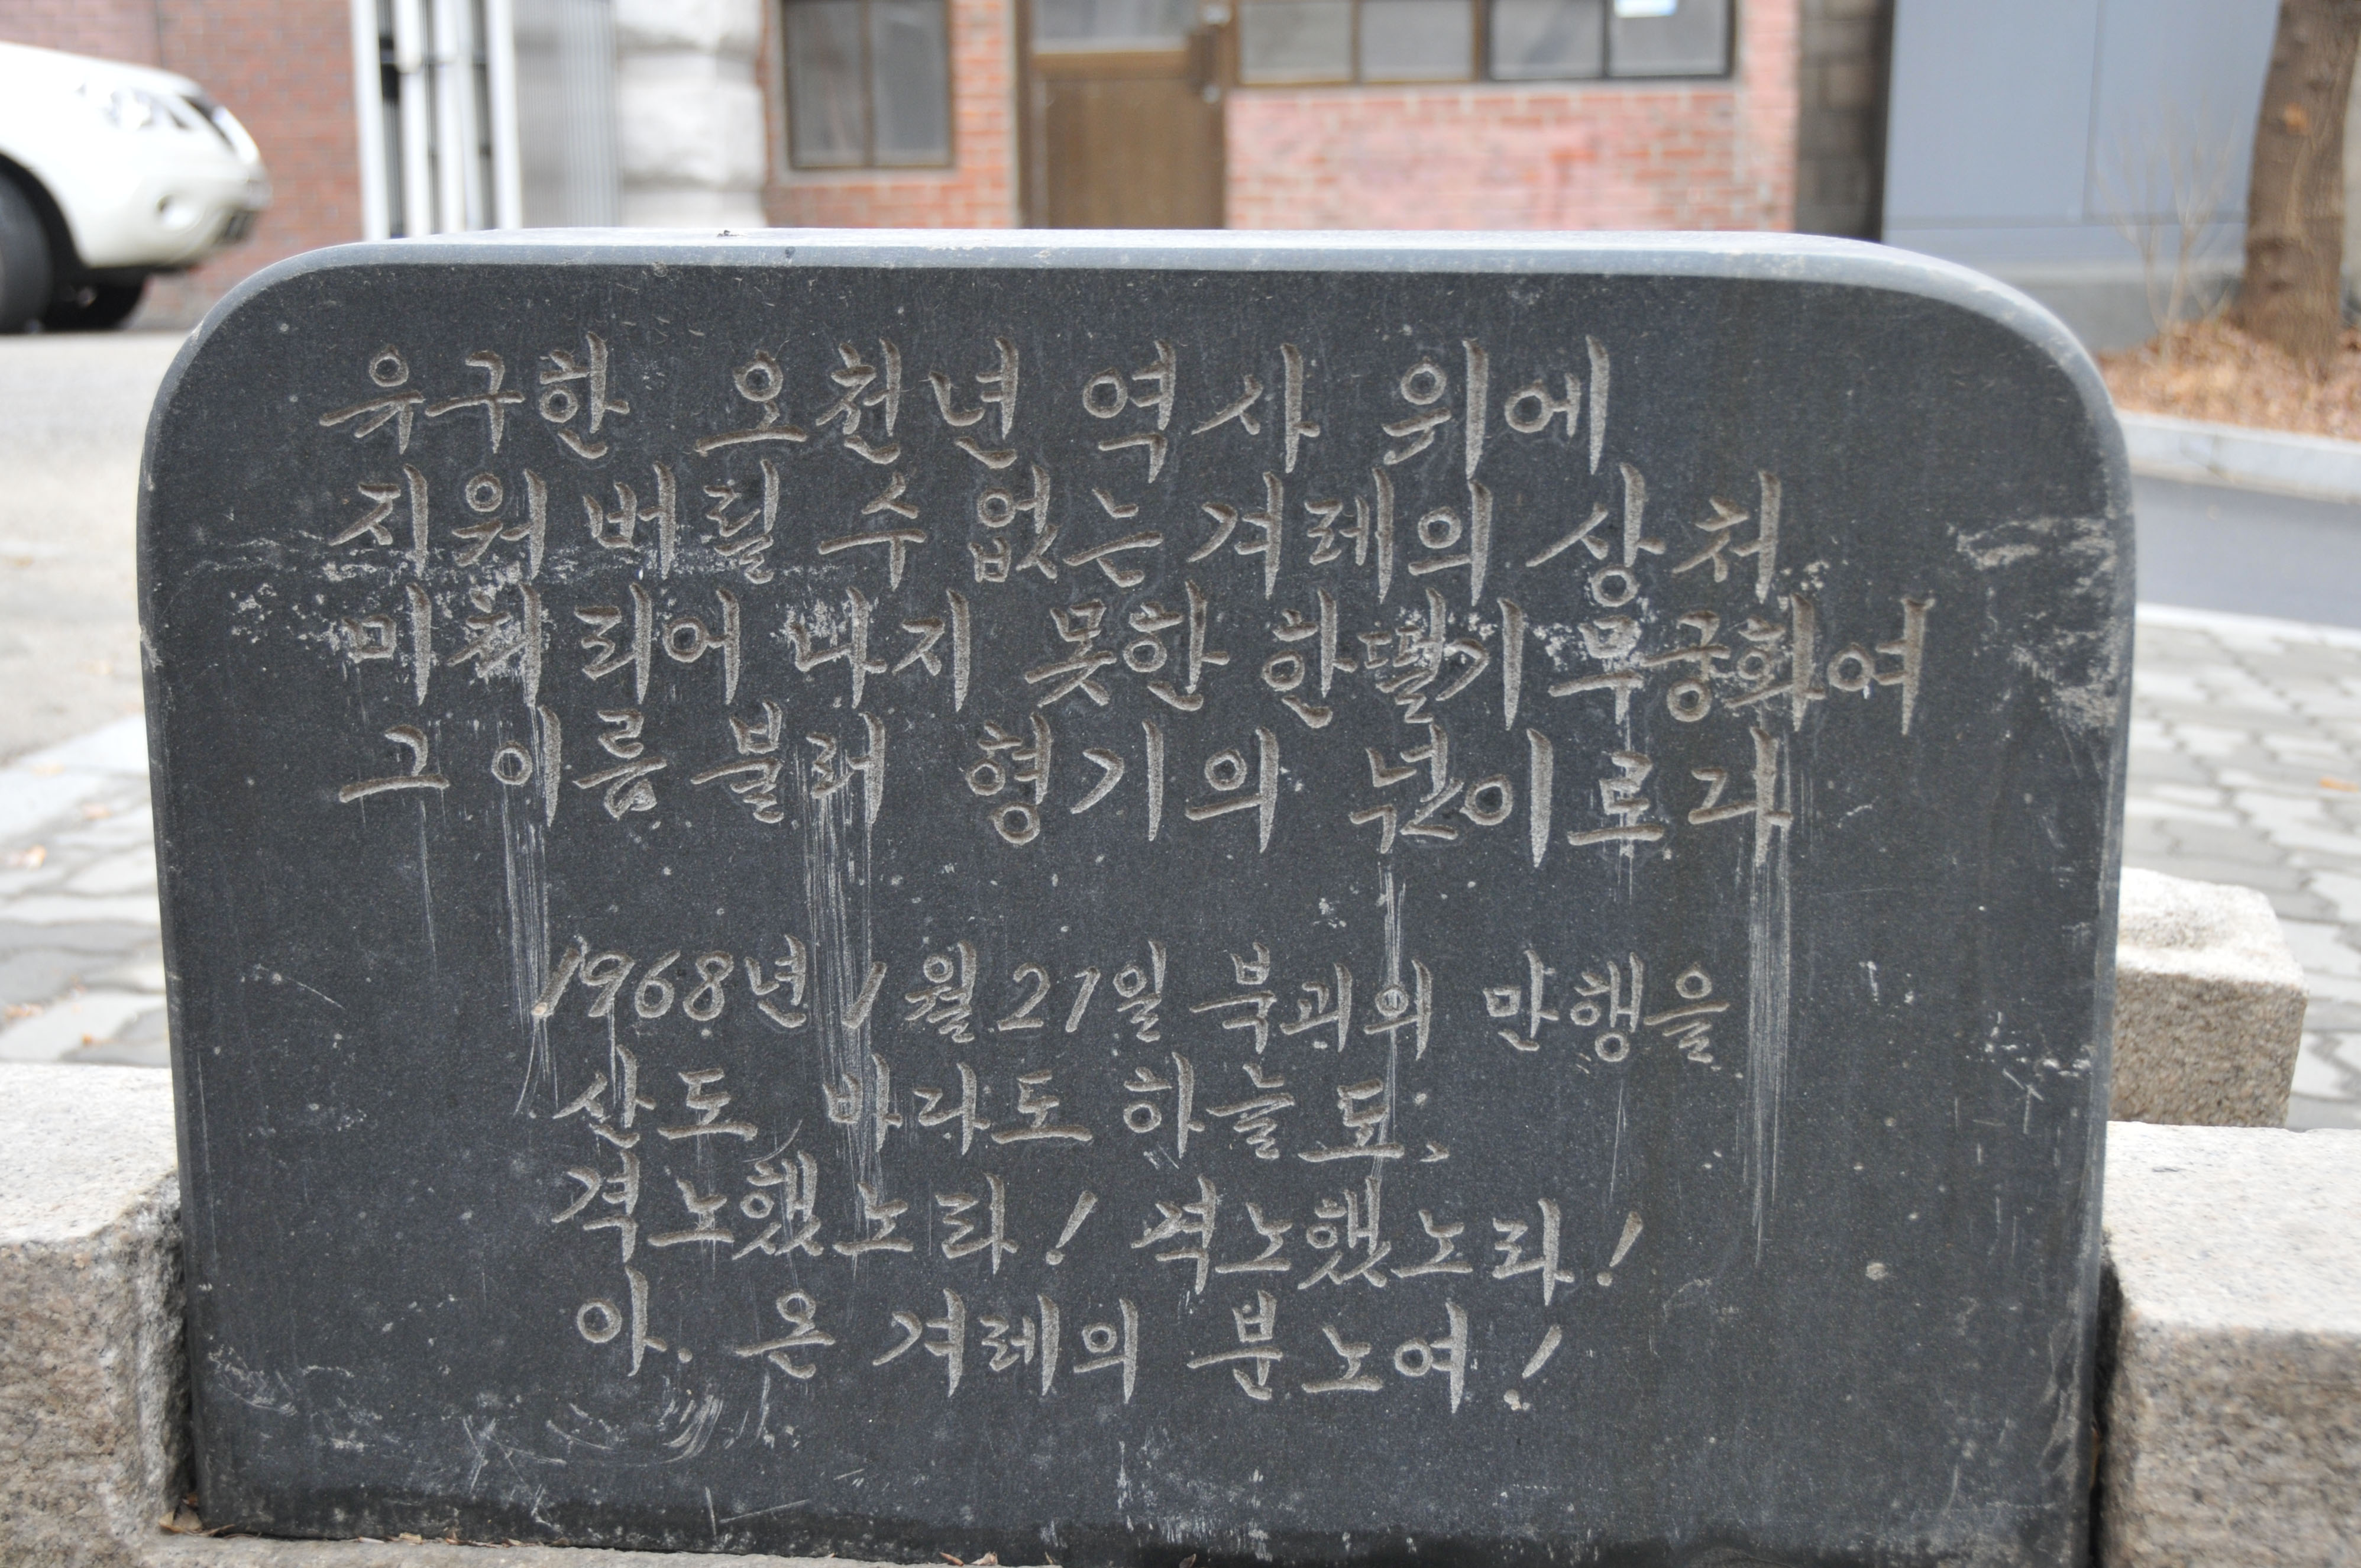 유구한 오천년 역사 위에
지워 버릴 수 없는 겨레의 상처
미쳐 피어 나지 못한 한떨기 무궁화여
그 이름 불러 형기의 넋이로라
1968년 1월 21일 북괴의 만행을
산도 바다도 하늘도,
격노했노라! 격노했노라!
아. 온 겨레의 분노여!